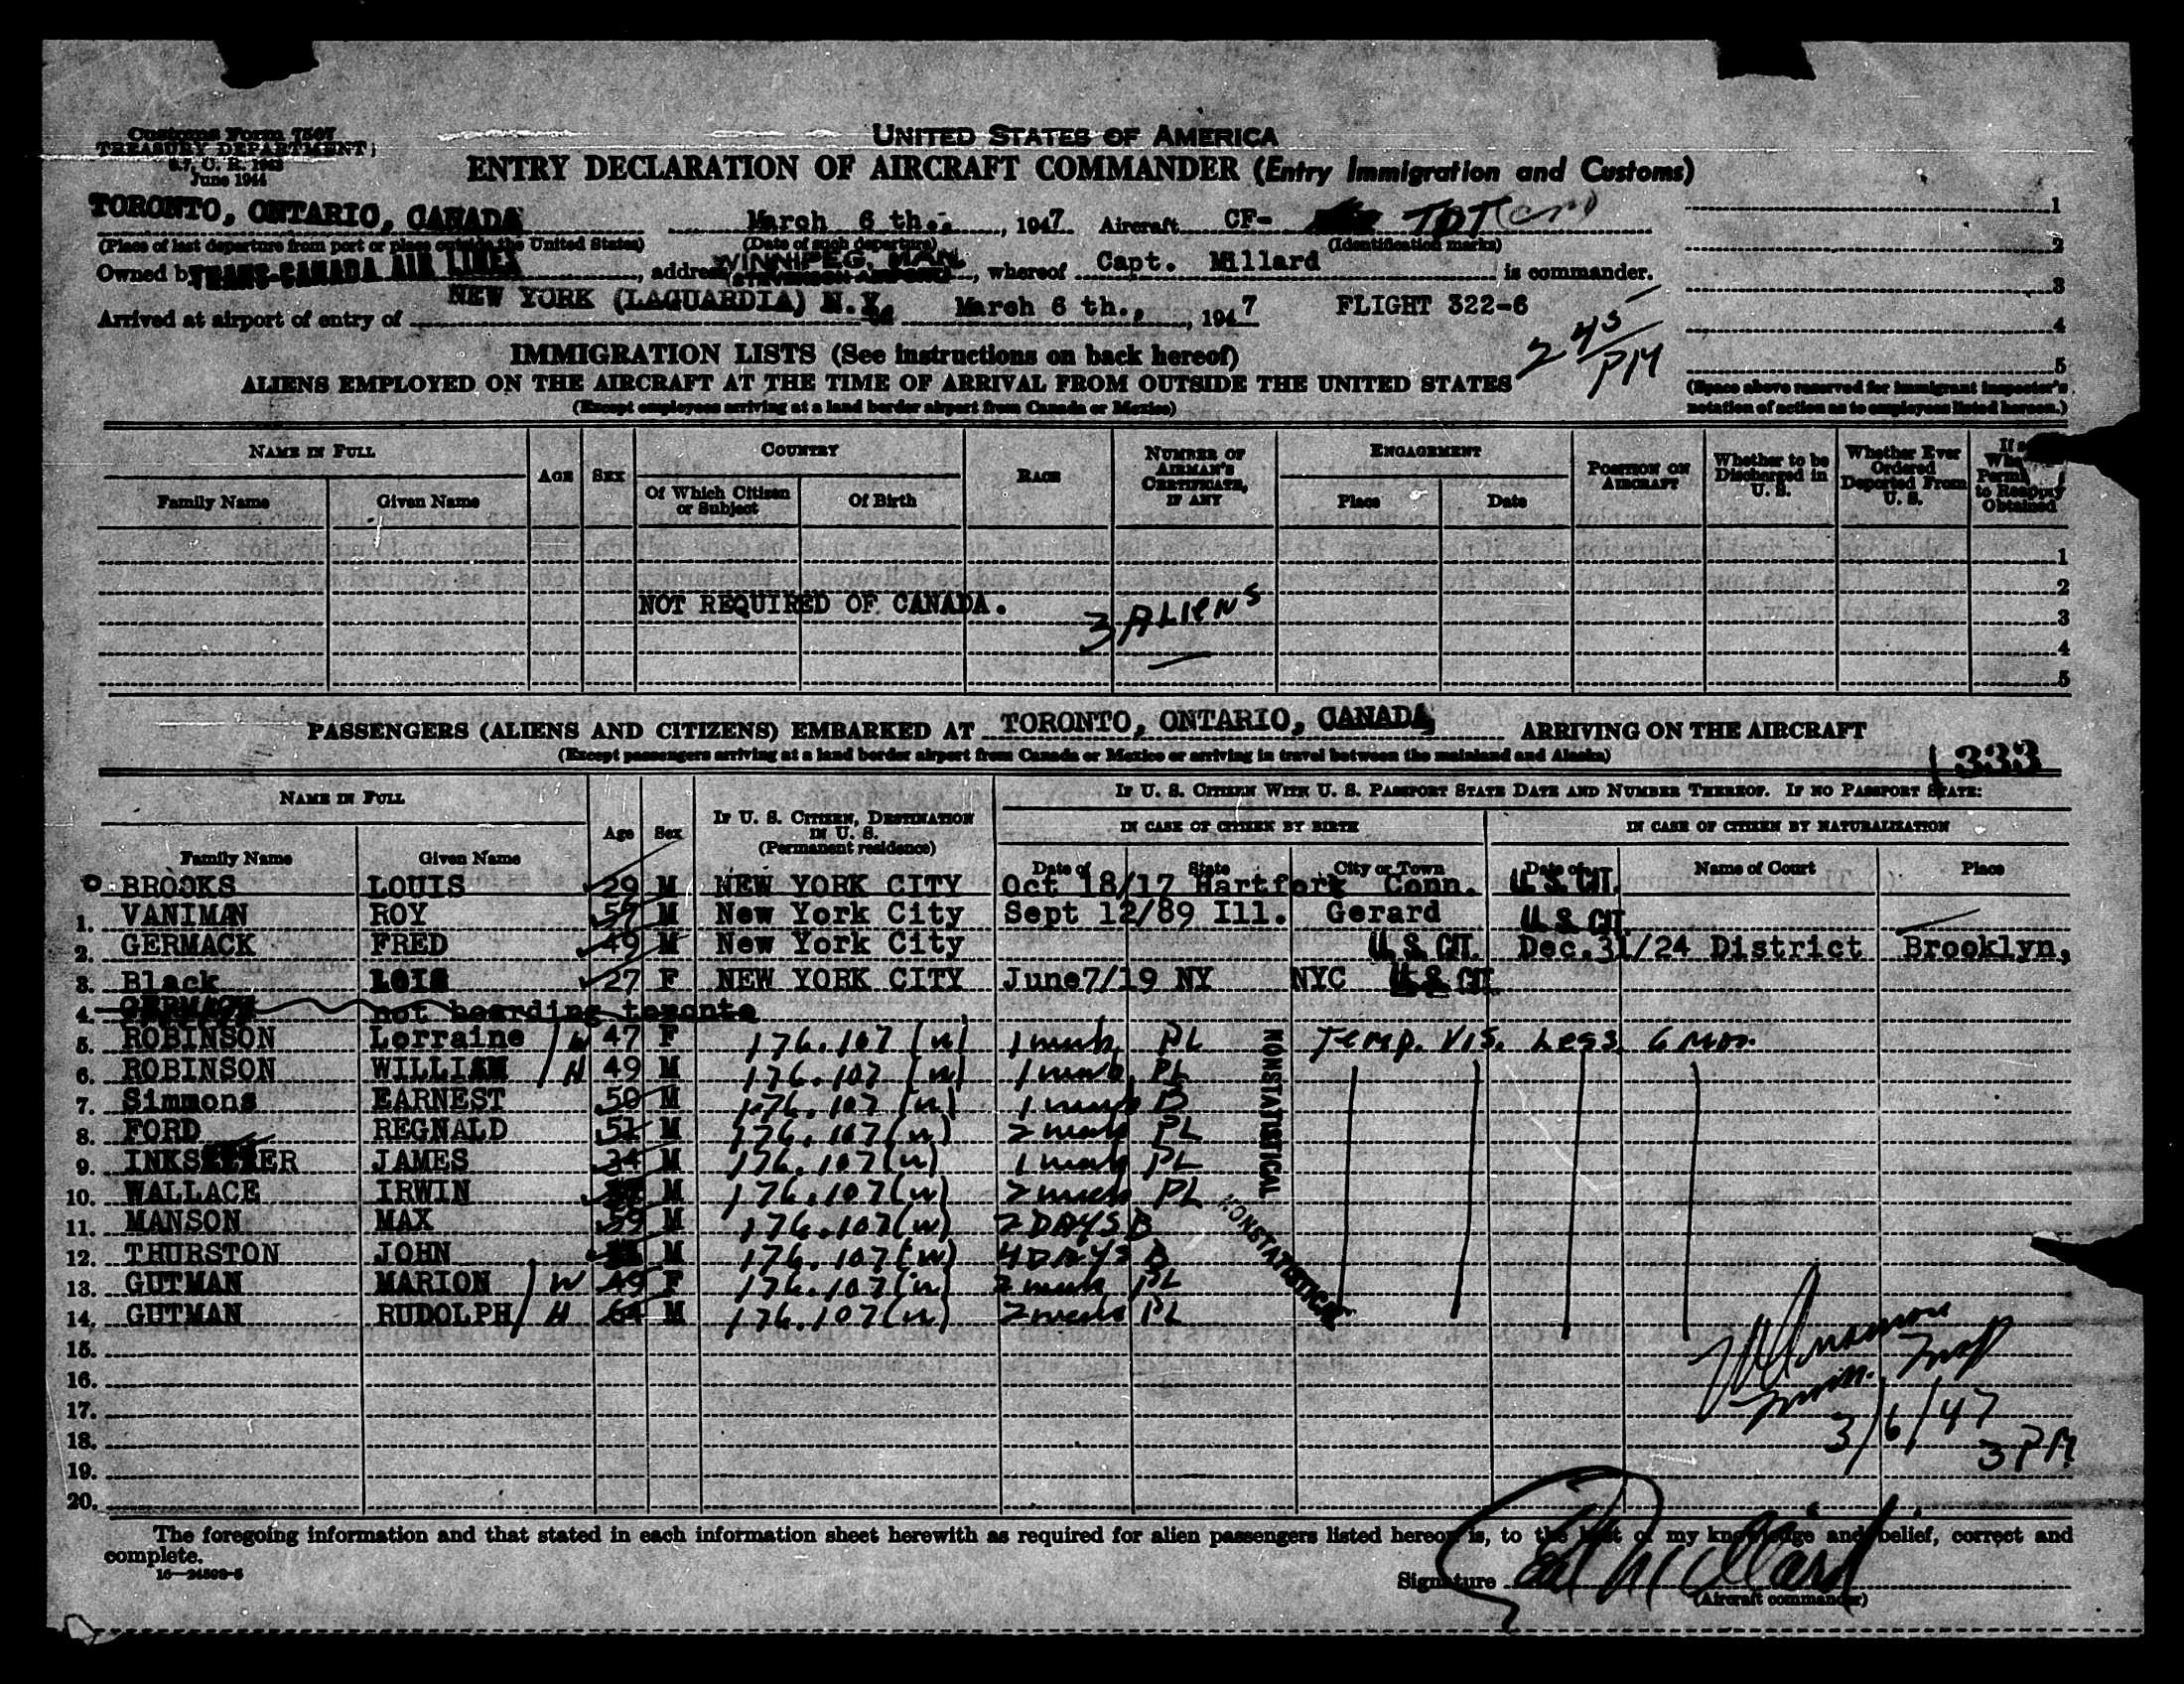 Customs Form 7507
TREASURY DEPARTMENT
June 1944
UNITED STATES OF AMERICA
ENTRY DECLARATION OF AIRCRAFT COMMANDER (Entry Immigration and Customs)
TORONTO, ONTARIO, CANADA March 6 th., 1947 Aircraft CF- TDT 1
(Place of last departure from port or place outside the United States) (Date of such departure) (Identification marks) 2
Owned by TRANS-CANADA AIR LINES, address WINNIPEG, MAN. (STEVENSON AIRPORT), whereof Capt. Millard is commander.
3
Arrived at airport of entry of NEW YORK (LAGUARDIA) N.Y. March 6 th., 1947 FLIGHT 322-6
4
245 PM
IMMIGRATION LISTS (See instructions on back hereof)
5
ALIENS EMPLOYED ON THE AIRCRAFT AT THE TIME OF ARRIVAL FROM OUTSIDE THE UNITED STATES (Space above reserved for immigrant inspector's
(Except employees arriving at a land border airport from Canada or Mexico) notation of action as to employees listed hereon.)
NAME IN FULL AGE SEX COUNTRY RACE NUMBER OF AIRMAN'S CERTIFICATE, IF ANY ENGAGEMENT POSITION ON AIRCRAFT Whether to be Discharged in U. S. Whether Ever Ordered Deported From U. S. to Reapply Obtained
Family Name Given Name Of Which Citizen or Subject Of Birth Place Date
1
2
NOT REQUIRED OF CANADA. 3 ALIENS 3
4
5
PASSENGERS (ALIENS AND CITIZENS) EMBARKED AT TORONTO, ONTARIO, CANADA ARRIVING ON THE AIRCRAFT
(Except passengers arriving at a land border airport from Canada or Mexico or arriving in travel between the mainland and Alaska) 333
NAME IN FULL Age Sex IF U. S. CITIZEN, DESTINATION IN U. S. (Permanent residence) IF U. S. CITIZEN WITH U. S. PASSPORT STATE DATE AND NUMBER THEREOF. IF NO PASSPORT STATE:
IN CASE OF CITIZEN BY BIRTH IN CASE OF CITIZEN BY NATURALIZATION
Family Name Given Name Date of State City or Town Date of Name of Court Place
0 BROOKS LOUIS 29 M NEW YORK CITY Oct 18/17 Hartfork Conn. U.S. CIT.
1. VANIMAN ROY 57 M New York City Sept 12/89 Ill. Gerard U.S. CIT.
2. GERMACK FRED 49 M New York City U.S. CIT. Dec.31/24 District Brooklyn,
3. Black LOIS 27 F NEW YORK CITY June7/19 NY NYC U.S. CIT
4. GERMACK not boarding toronto
5. ROBINSON Lorraine W 47 F 176.107 (w) PL Temp. Vis. Less 6 Mos.
6. ROBINSON WILLIAM H 49 M 176.107 (w) PL
7. Simmons EARNEST 50 M 176.107 (w) B
8. FORD REGNALD 51 M 176.107 (w) PL
9. INKS ER JAMES 34 M 176.107 (w) PL
10. WALLACE IRWIN M 176.107 (w) PL
11. MANSON MAX 59 M 176.107 (w) 2 DAYS B
12. THURSTON JOHN M 176.107 (w) 4 DAYS B
13. GUTMAN MARION W 49 F 176.107 (w) PL
14. GUTMAN RUDOLPH H 64 M 176.107 (w) PL
NONSTATISTICAL
NONSTATISTICAL
15.
16.
17.
18.
19.
20.
Imm. Insp
3/6/47
3 PM
The foregoing information and that stated in each information sheet herewith as required for alien passengers listed hereon is, to the best of my knowledge and belief, correct and
complete.
Signature Millard
(Aircraft commander)